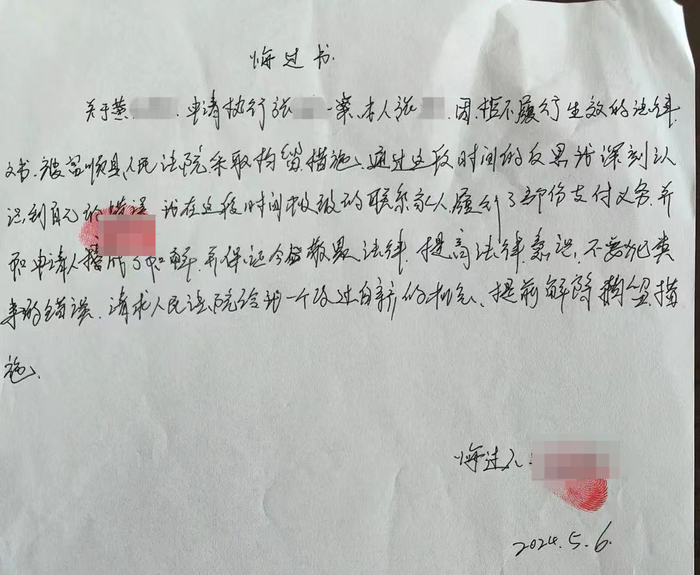 悔过书
关于黄 申请执行张 一案,本人张 因拒不履行生效的法律
文书,被富顺县人民法院采取拘留措施。通过这段时间的反思我深刻认
识到自己的错误 我在这段时间积极的联系家人履行了部份支付义务,并
和申请人 和解,并保证今后敬畏法律,提高法律意识,不要犯类
事的错误,请求人民法院给我一个改过自新的机会、提前解除拘留措
施、
悔过人
2024.5.6.